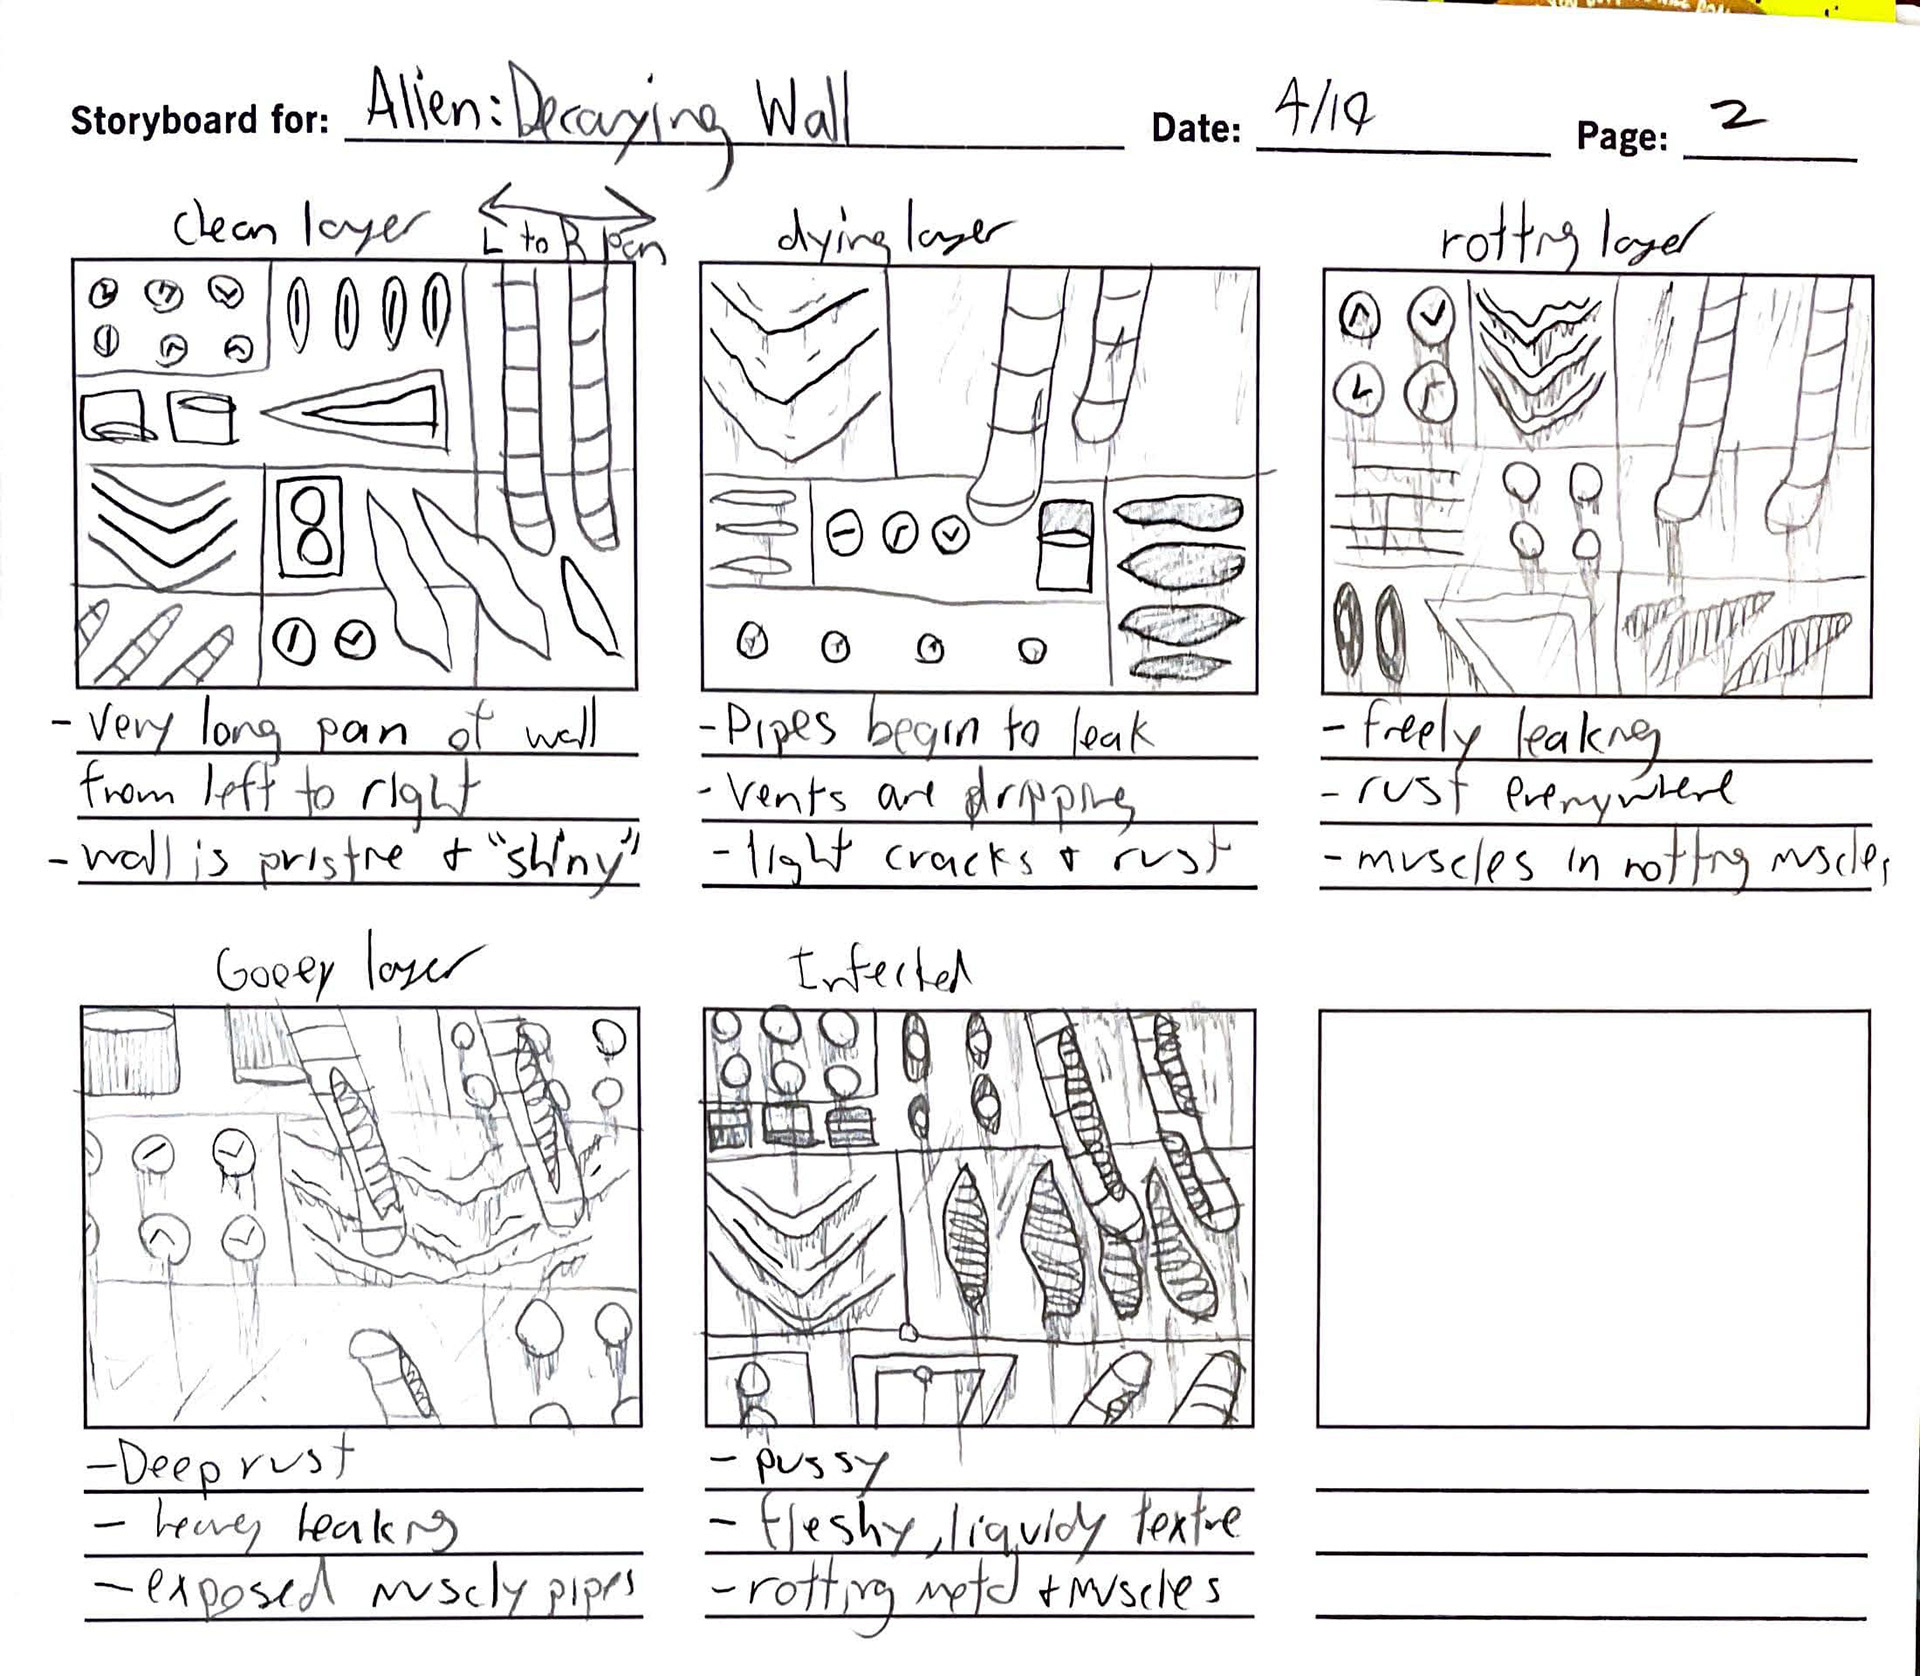 Storyboard for: Alien: Decaying Wall Date: 4/19 Page: 2
clean layer
L to R pan
dying layer
rottng layer
- very long pan of wall
from left to right
- wall is pristne + "shiny"
- Pipes begin to leak
- vents are drippng
- light cracks + rust
- freely leakng
- rust everywhere
- muscles in rottng muscles
Gooey layer
Infected
- Deep rust
- heavy leakng
- exposed muscly pipes
- pussy
- fleshy, liquidy textre
- rotting metal + muscles